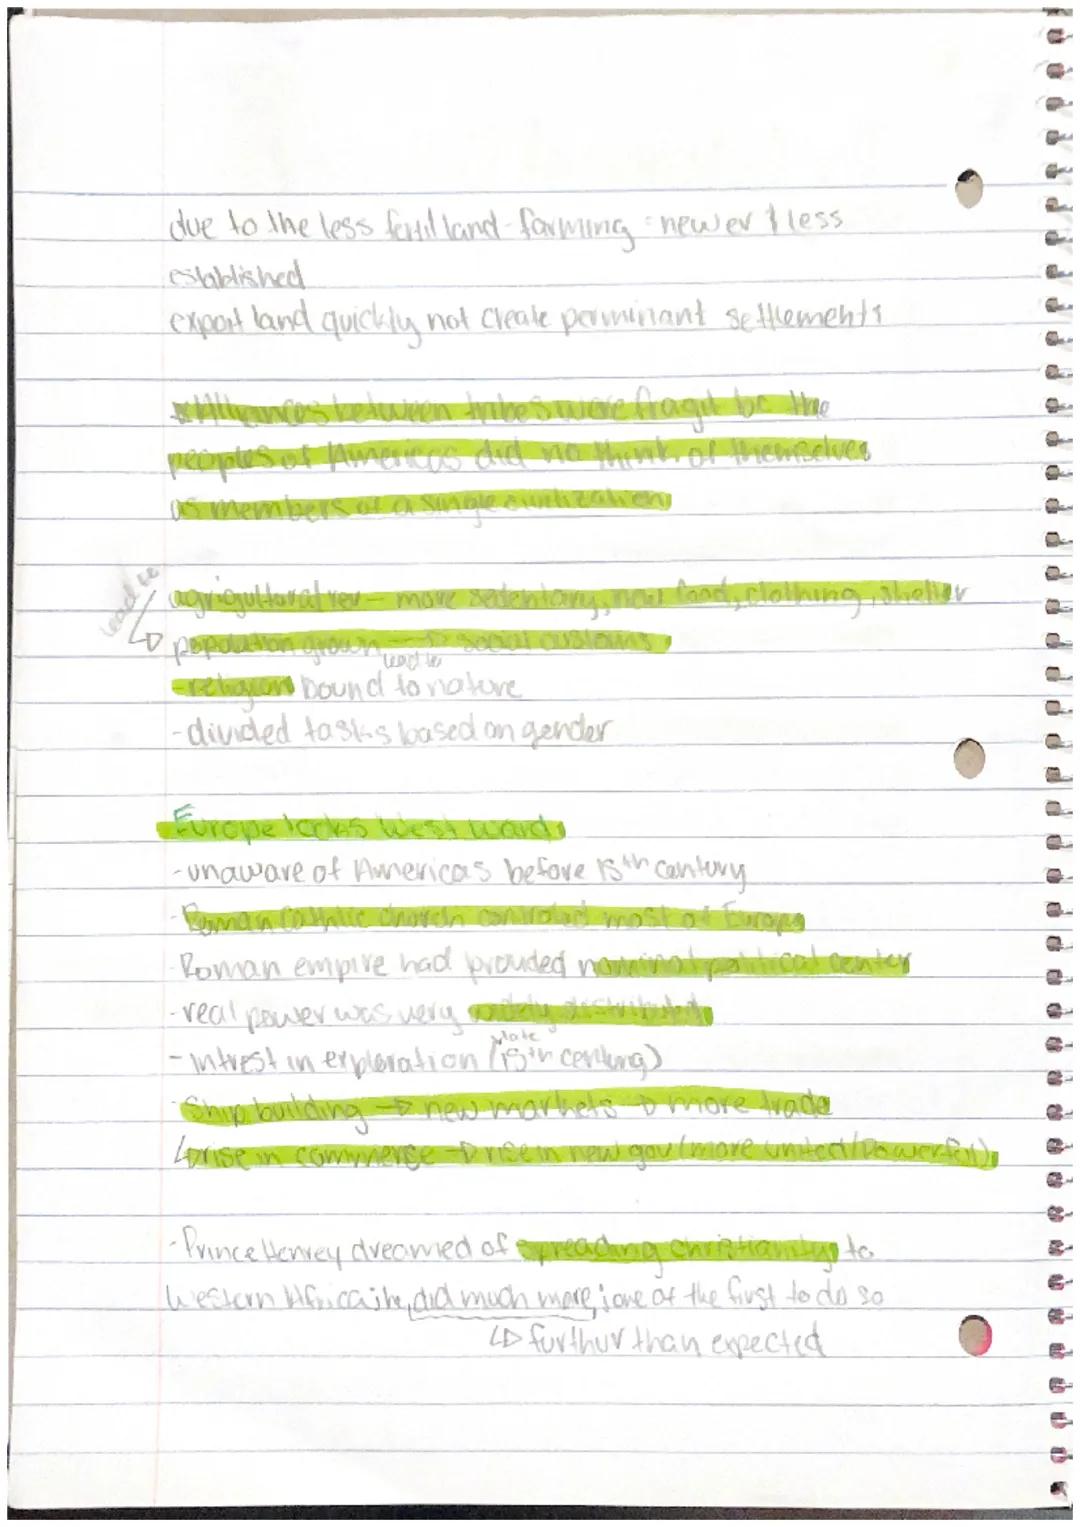 due to the less fertil land - farming = newer & less
established
export land quickly not create perminant settlements
*Alliances between tribes were fragil bc the
peoples of Americas did no think of themselves
as members of a single civilization
lead to
agrigultoral rev - more sedentary, new food, clothing, shelter
↳ population grown → social customs
lead to
- religion bound to nature
- divided tasks based on gender
Europe looks West ward
- unaware of Americas before 15th century
- Roman Cathlic church controled most of Europe
- Roman empire had provided nominal political center
- real power was very widely distributed
late
- intrest in exploration (15th century)
- Ship building → new markets → more trade
↳ rise in commerce → rise in new gov (more united/Powerful)
- Prince Henrey dreamed of spreading christianity to
Western Africa; he did much more; one of the first to do so
↳ furthur than expected